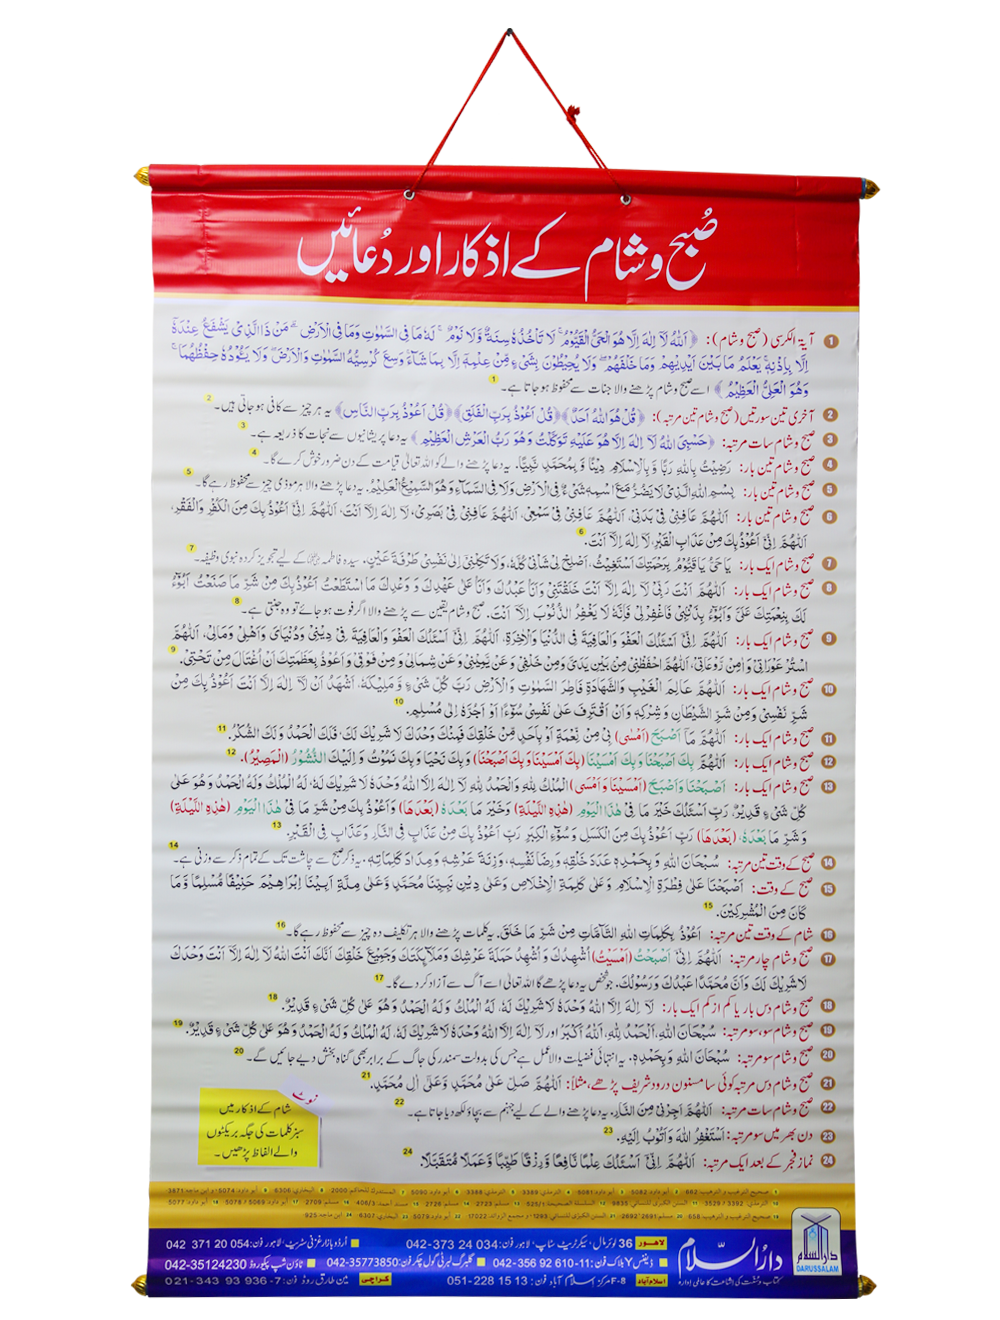 صُبح و شام کے اذکار اور دُعائیں
1 آیۃ الکرسی (صبح و شام): ﴿اَللّٰهُ لَآ اِلٰهَ اِلَّا هُوَ الْحَيُّ الْقَيُّوْمُ ۚ لَا تَاْخُذُهٗ سِنَةٌ وَّلَا نَوْمٌ ۚ لَهٗ مَا فِي السَّمٰوٰتِ وَمَا فِي الْاَرْضِ ۗ مَنْ ذَا الَّذِيْ يَشْفَعُ عِنْدَهٗٓ
اِلَّا بِاِذْنِهٖ ۚ يَعْلَمُ مَا بَيْنَ اَيْدِيْهِمْ وَمَا خَلْفَهُمْ ۚ وَلَا يُحِيْطُوْنَ بِشَيْءٍ مِّنْ عِلْمِهٖٓ اِلَّا بِمَا شَآءَ ۚ وَسِعَ كُرْسِيُّهُ السَّمٰوٰتِ وَالْاَرْضَ ۚ وَلَا يَـُٔوْدُهٗ حِفْظُهُمَا ۚ
وَهُوَ الْعَلِيُّ الْعَظِيْمُ﴾ اسے صبح و شام پڑھنے والا جنات سے محفوظ ہو جاتا ہے۔ 1
2 آخری تین سورتیں (صبح و شام تین مرتبہ): ﴿قُلْ هُوَ اللّٰهُ اَحَدٌ﴾ ﴿قُلْ اَعُوْذُ بِرَبِّ الْفَلَقِ﴾ ﴿قُلْ اَعُوْذُ بِرَبِّ النَّاسِ﴾ یہ ہر چیز سے کافی ہو جاتی ہیں۔ 2
3 صبح و شام سات مرتبہ: ﴿حَسْبِيَ اللّٰهُ لَآ اِلٰهَ اِلَّا هُوَ عَلَيْهِ تَوَكَّلْتُ وَهُوَ رَبُّ الْعَرْشِ الْعَظِيْمِ﴾ یہ دعا پریشانیوں سے نجات کا ذریعہ ہے۔ 3
4 صبح و شام تین بار: رَضِيْتُ بِاللّٰهِ رَبًّا وَّبِالْاِسْلَامِ دِيْنًا وَّبِمُحَمَّدٍ نَّبِيًّا. یہ دعا پڑھنے والے کو اللہ تعالیٰ قیامت کے دن ضرور خوش کرے گا۔ 4
5 صبح و شام تین بار: بِسْمِ اللّٰهِ الَّذِيْ لَا يَضُرُّ مَعَ اسْمِهٖ شَيْءٌ فِي الْاَرْضِ وَلَا فِي السَّمَآءِ وَهُوَ السَّمِيْعُ الْعَلِيْمُ. یہ دعا پڑھنے والا ہر موذی چیز سے محفوظ رہے گا۔ 5
6 صبح و شام تین بار: اَللّٰهُمَّ عَافِنِيْ فِيْ بَدَنِيْ، اَللّٰهُمَّ عَافِنِيْ فِيْ سَمْعِيْ، اَللّٰهُمَّ عَافِنِيْ فِيْ بَصَرِيْ، لَآ اِلٰهَ اِلَّا اَنْتَ، اَللّٰهُمَّ اِنِّيْٓ اَعُوْذُ بِكَ مِنَ الْكُفْرِ وَالْفَقْرِ،
اَللّٰهُمَّ اِنِّيْٓ اَعُوْذُ بِكَ مِنْ عَذَابِ الْقَبْرِ لَآ اِلٰهَ اِلَّآ اَنْتَ. 6
7 صبح و شام ایک بار: يَا حَيُّ يَا قَيُّوْمُ بِرَحْمَتِكَ اَسْتَغِيْثُ، اَصْلِحْ لِيْ شَاْنِيْ كُلَّهٗ، وَلَا تَكِلْنِيْٓ اِلٰى نَفْسِيْ طَرْفَةَ عَيْنٍ. سیدہ فاطمہ کے لیے تجویز کردہ نبوی وظیفہ۔ 7
8 صبح و شام ایک بار: اَللّٰهُمَّ اَنْتَ رَبِّيْ لَآ اِلٰهَ اِلَّآ اَنْتَ خَلَقْتَنِيْ وَاَنَا عَبْدُكَ وَاَنَا عَلٰى عَهْدِكَ وَ وَعْدِكَ مَا اسْتَطَعْتُ اَعُوْذُ بِكَ مِنْ شَرِّ مَا صَنَعْتُ اَبُوْٓءُ
لَكَ بِنِعْمَتِكَ عَلَيَّ وَاَبُوْٓءُ بِذَنْبِيْ فَاغْفِرْلِيْ فَاِنَّهٗ لَا يَغْفِرُ الذُّنُوْبَ اِلَّآ اَنْتَ. صبح و شام یقین سے پڑھنے والا اگر فوت ہو جائے تو وہ جنتی ہے۔ 8
9 صبح و شام ایک بار: اَللّٰهُمَّ اِنِّيْٓ اَسْئَلُكَ الْعَفْوَ وَالْعَافِيَةَ فِي الدُّنْيَا وَالْاٰخِرَةِ، اَللّٰهُمَّ اِنِّيْٓ اَسْئَلُكَ الْعَفْوَ وَالْعَافِيَةَ فِيْ دِيْنِيْ وَدُنْيَايَ وَاَهْلِيْ وَمَالِيْ، اَللّٰهُمَّ
اسْتُرْ عَوْرَاتِيْ وَاٰمِنْ رَوْعَاتِيْ، اَللّٰهُمَّ احْفَظْنِيْ مِنْ بَيْنِ يَدَيَّ وَمِنْ خَلْفِيْ وَعَنْ يَّمِيْنِيْ وَعَنْ شِمَالِيْ وَمِنْ فَوْقِيْ وَاَعُوْذُ بِعَظَمَتِكَ اَنْ اُغْتَالَ مِنْ تَحْتِيْ. 9
10 صبح و شام ایک بار: اَللّٰهُمَّ عَالِمَ الْغَيْبِ وَالشَّهَادَةِ فَاطِرَ السَّمٰوٰتِ وَالْاَرْضِ رَبَّ كُلِّ شَيْءٍ وَّمَلِيْكَهٗ، اَشْهَدُ اَنْ لَّآ اِلٰهَ اِلَّآ اَنْتَ اَعُوْذُ بِكَ مِنْ
شَرِّ نَفْسِيْ وَمِنْ شَرِّ الشَّيْطَانِ وَشِرْكِهٖ وَاَنْ اَقْتَرِفَ عَلٰى نَفْسِيْ سُوْٓءًا اَوْ اَجُرَّهٗٓ اِلٰى مُسْلِمٍ. 10
11 صبح و شام ایک بار: اَللّٰهُمَّ مَآ اَصْبَحَ (اَمْسٰى) بِيْ مِنْ نِّعْمَةٍ اَوْ بِاَحَدٍ مِّنْ خَلْقِكَ فَمِنْكَ وَحْدَكَ لَا شَرِيْكَ لَكَ، فَلَكَ الْحَمْدُ وَلَكَ الشُّكْرُ. 11
12 صبح و شام ایک بار: اَللّٰهُمَّ بِكَ اَصْبَحْنَا وَبِكَ اَمْسَيْنَا (بِكَ اَمْسَيْنَا وَبِكَ اَصْبَحْنَا) وَبِكَ نَحْيَا وَبِكَ نَمُوْتُ وَاِلَيْكَ النُّشُوْرُ (الْمَصِيْرُ). 12
13 صبح و شام ایک بار: اَصْبَحْنَا وَاَصْبَحَ (اَمْسَيْنَا وَاَمْسَى) الْمُلْكُ لِلّٰهِ وَالْحَمْدُ لِلّٰهِ لَآ اِلٰهَ اِلَّا اللّٰهُ وَحْدَهٗ لَا شَرِيْكَ لَهٗ، لَهُ الْمُلْكُ وَلَهُ الْحَمْدُ وَهُوَ عَلٰى
كُلِّ شَيْءٍ قَدِيْرٌ، رَبِّ اَسْئَلُكَ خَيْرَ مَا فِيْ هٰذَا الْيَوْمِ (هٰذِهِ اللَّيْلَةِ) وَخَيْرَ مَا بَعْدَهٗ (بَعْدَهَا) وَاَعُوْذُ بِكَ مِنْ شَرِّ مَا فِيْ هٰذَا الْيَوْمِ (هٰذِهِ اللَّيْلَةِ)
وَشَرِّ مَا بَعْدَهٗ، (بَعْدَهَا) رَبِّ اَعُوْذُ بِكَ مِنَ الْكَسَلِ وَسُوْٓءِ الْكِبَرِ رَبِّ اَعُوْذُ بِكَ مِنْ عَذَابٍ فِي النَّارِ وَعَذَابٍ فِي الْقَبْرِ. 13
14 صبح کے وقت تین مرتبہ: سُبْحَانَ اللّٰهِ وَبِحَمْدِهٖ عَدَدَ خَلْقِهٖ وَرِضَا نَفْسِهٖ، وَزِنَةَ عَرْشِهٖ وَمِدَادَ كَلِمَاتِهٖ. یہ ذکر صبح سے چاشت تک کے تمام ذکر سے وزنی ہے۔ 14
15 صبح کے وقت: اَصْبَحْنَا عَلٰى فِطْرَةِ الْاِسْلَامِ وَعَلٰى كَلِمَةِ الْاِخْلَاصِ وَعَلٰى دِيْنِ نَبِيِّنَا مُحَمَّدٍ وَّعَلٰى مِلَّةِ اَبِيْنَآ اِبْرَاهِيْمَ حَنِيْفًا مُّسْلِمًا وَّمَا
كَانَ مِنَ الْمُشْرِكِيْنَ. 15
16 شام کے وقت تین مرتبہ: اَعُوْذُ بِكَلِمَاتِ اللّٰهِ التَّآمَّاتِ مِنْ شَرِّ مَا خَلَقَ. یہ کلمات پڑھنے والا ہر تکلیف دہ چیز سے محفوظ رہے گا۔ 16
17 صبح و شام چار مرتبہ: اَللّٰهُمَّ اِنِّيْٓ اَصْبَحْتُ (اَمْسَيْتُ) اُشْهِدُكَ وَاُشْهِدُ حَمَلَةَ عَرْشِكَ وَمَلَآئِكَتَكَ وَجَمِيْعَ خَلْقِكَ اَنَّكَ اَنْتَ اللّٰهُ لَآ اِلٰهَ اِلَّآ اَنْتَ وَحْدَكَ
لَا شَرِيْكَ لَكَ وَاَنَّ مُحَمَّدًا عَبْدُكَ وَرَسُوْلُكَ. جو شخص یہ دعا پڑھے گا اللہ تعالیٰ اسے آگ سے آزاد کر دے گا۔ 17
18 صبح و شام دس بار یا کم از کم ایک بار: لَآ اِلٰهَ اِلَّا اللّٰهُ وَحْدَهٗ لَا شَرِيْكَ لَهٗ، لَهُ الْمُلْكُ وَلَهُ الْحَمْدُ وَهُوَ عَلٰى كُلِّ شَيْءٍ قَدِيْرٌ. 18
19 صبح و شام سو، سو مرتبہ: سُبْحَانَ اللّٰهِ، اَلْحَمْدُ لِلّٰهِ، اَللّٰهُ اَكْبَرُ اور لَآ اِلٰهَ اِلَّا اللّٰهُ وَحْدَهٗ لَا شَرِيْكَ لَهٗ، لَهُ الْمُلْكُ وَلَهُ الْحَمْدُ وَهُوَ عَلٰى كُلِّ شَيْءٍ قَدِيْرٌ. 19
20 صبح و شام سو مرتبہ: سُبْحَانَ اللّٰهِ وَبِحَمْدِهٖ. یہ انتہائی فضیلت والا عمل ہے جس کی بدولت سمندر کی جاگ کے برابر بھی گناہ بخش دیے جائیں گے۔ 20
21 صبح و شام دس مرتبہ کوئی سا مسنون درود شریف پڑھے، مثلاً: اَللّٰهُمَّ صَلِّ عَلٰى مُحَمَّدٍ وَّعَلٰٓى اٰلِ مُحَمَّدٍ. 21
22 صبح و شام سات مرتبہ: اَللّٰهُمَّ اَجِرْنِيْ مِنَ النَّارِ. یہ دعا پڑھنے والے کے لیے جہنم سے بچاؤ لکھ دیا جاتا ہے۔ 22
23 دن بھر میں سو مرتبہ: اَسْتَغْفِرُ اللّٰهَ وَاَتُوْبُ اِلَيْهِ. 23
24 نماز فجر کے بعد ایک مرتبہ: اَللّٰهُمَّ اِنِّيْٓ اَسْئَلُكَ عِلْمًا نَّافِعًا وَّرِزْقًا طَيِّبًا وَّعَمَلًا مُّتَقَبَّلًا. 24
نوٹ
شام کے اذکار میں
سبز کلمات کی جگہ بریکٹوں
والے الفاظ پڑھیں۔
دارُالسّلام
کتاب و سنت کی اشاعت کا عالمی ادارہ
دارالسلام
DARUSSALAM
لاہور 36 لوئر مال، سیکرٹریٹ سٹاپ، لاہور فون: 042-373 24 034
اُردو بازار غزنی سٹریٹ، لاہور فون: 042 371 20 054
ڈیفنس Y بلاک فون: 042-356 92 610-11
گلبرگ لبرٹی گول چکر فون: 042-35773850
ٹاؤن شپ پیکو روڈ 042-35124230
اسلام آباد F-8 مرکز اسلام آباد فون: 051-228 15 13
کراچی مین طارق روڈ فون: 021-343 93 936-7